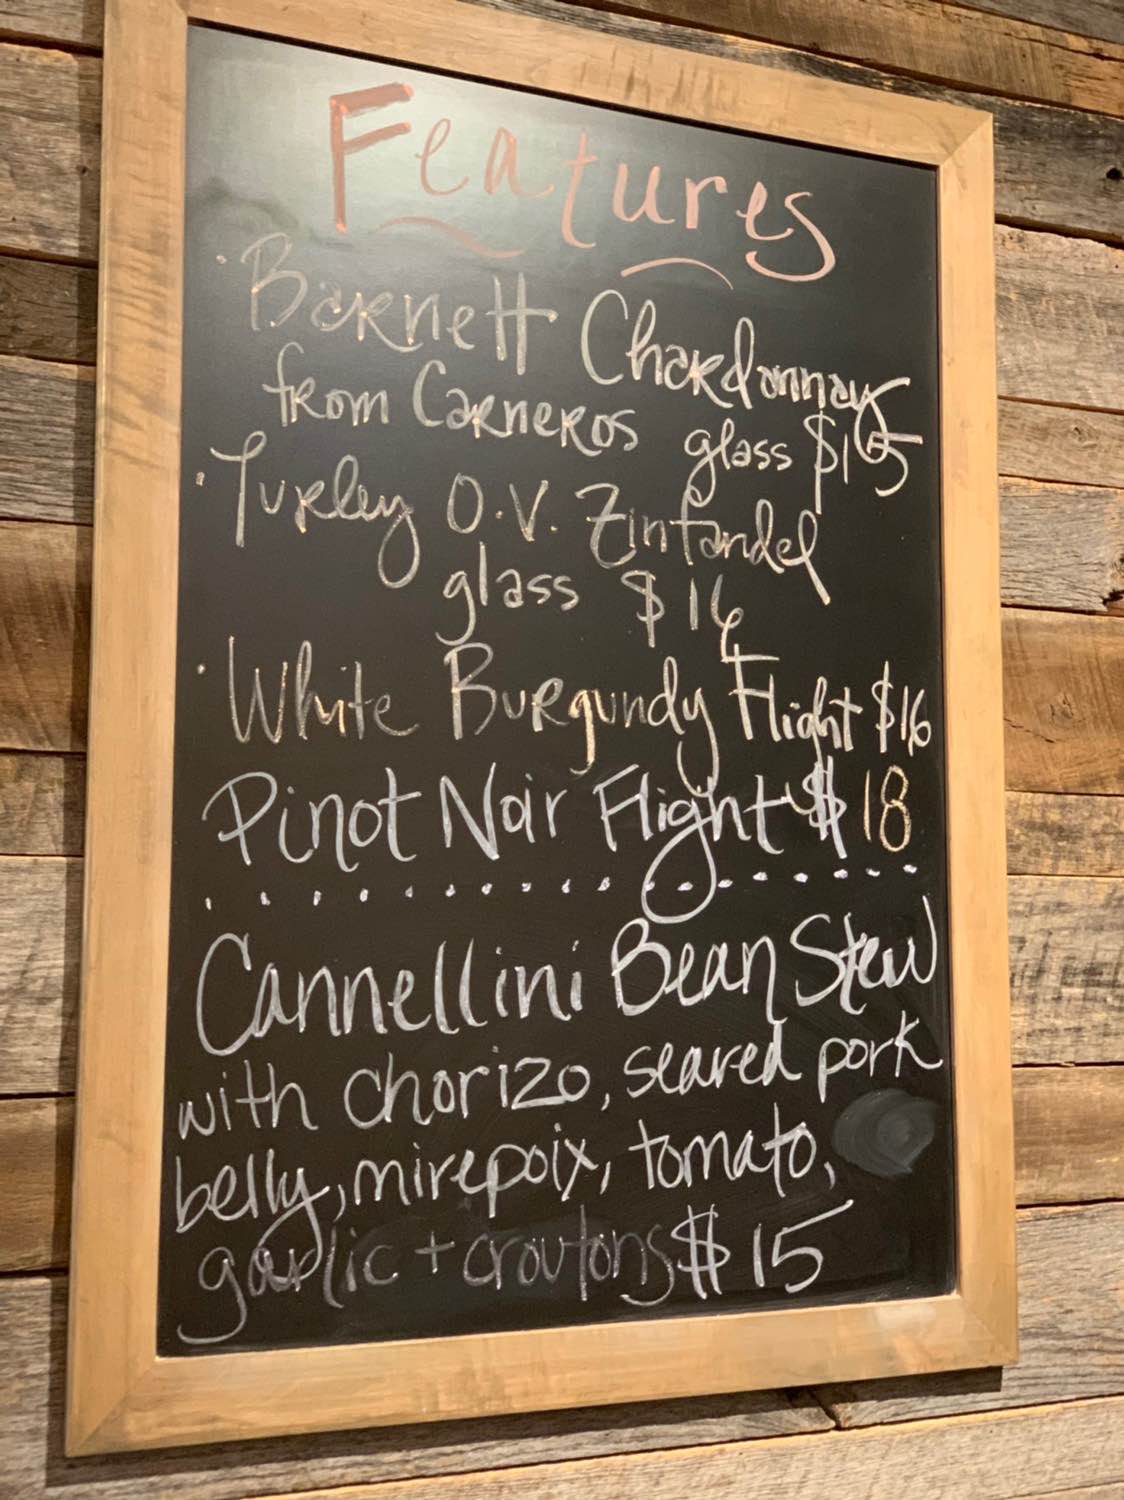 Features
· Barnett Chardonnay
from Carneros glass $15
· Turley O.V. Zinfandel
glass $16
· White Burgundy Flight $16
Pinot Noir Flight $18
Cannellini Bean Stew
with chorizo, seared pork
belly, mirepoix, tomato,
garlic + croutons $15